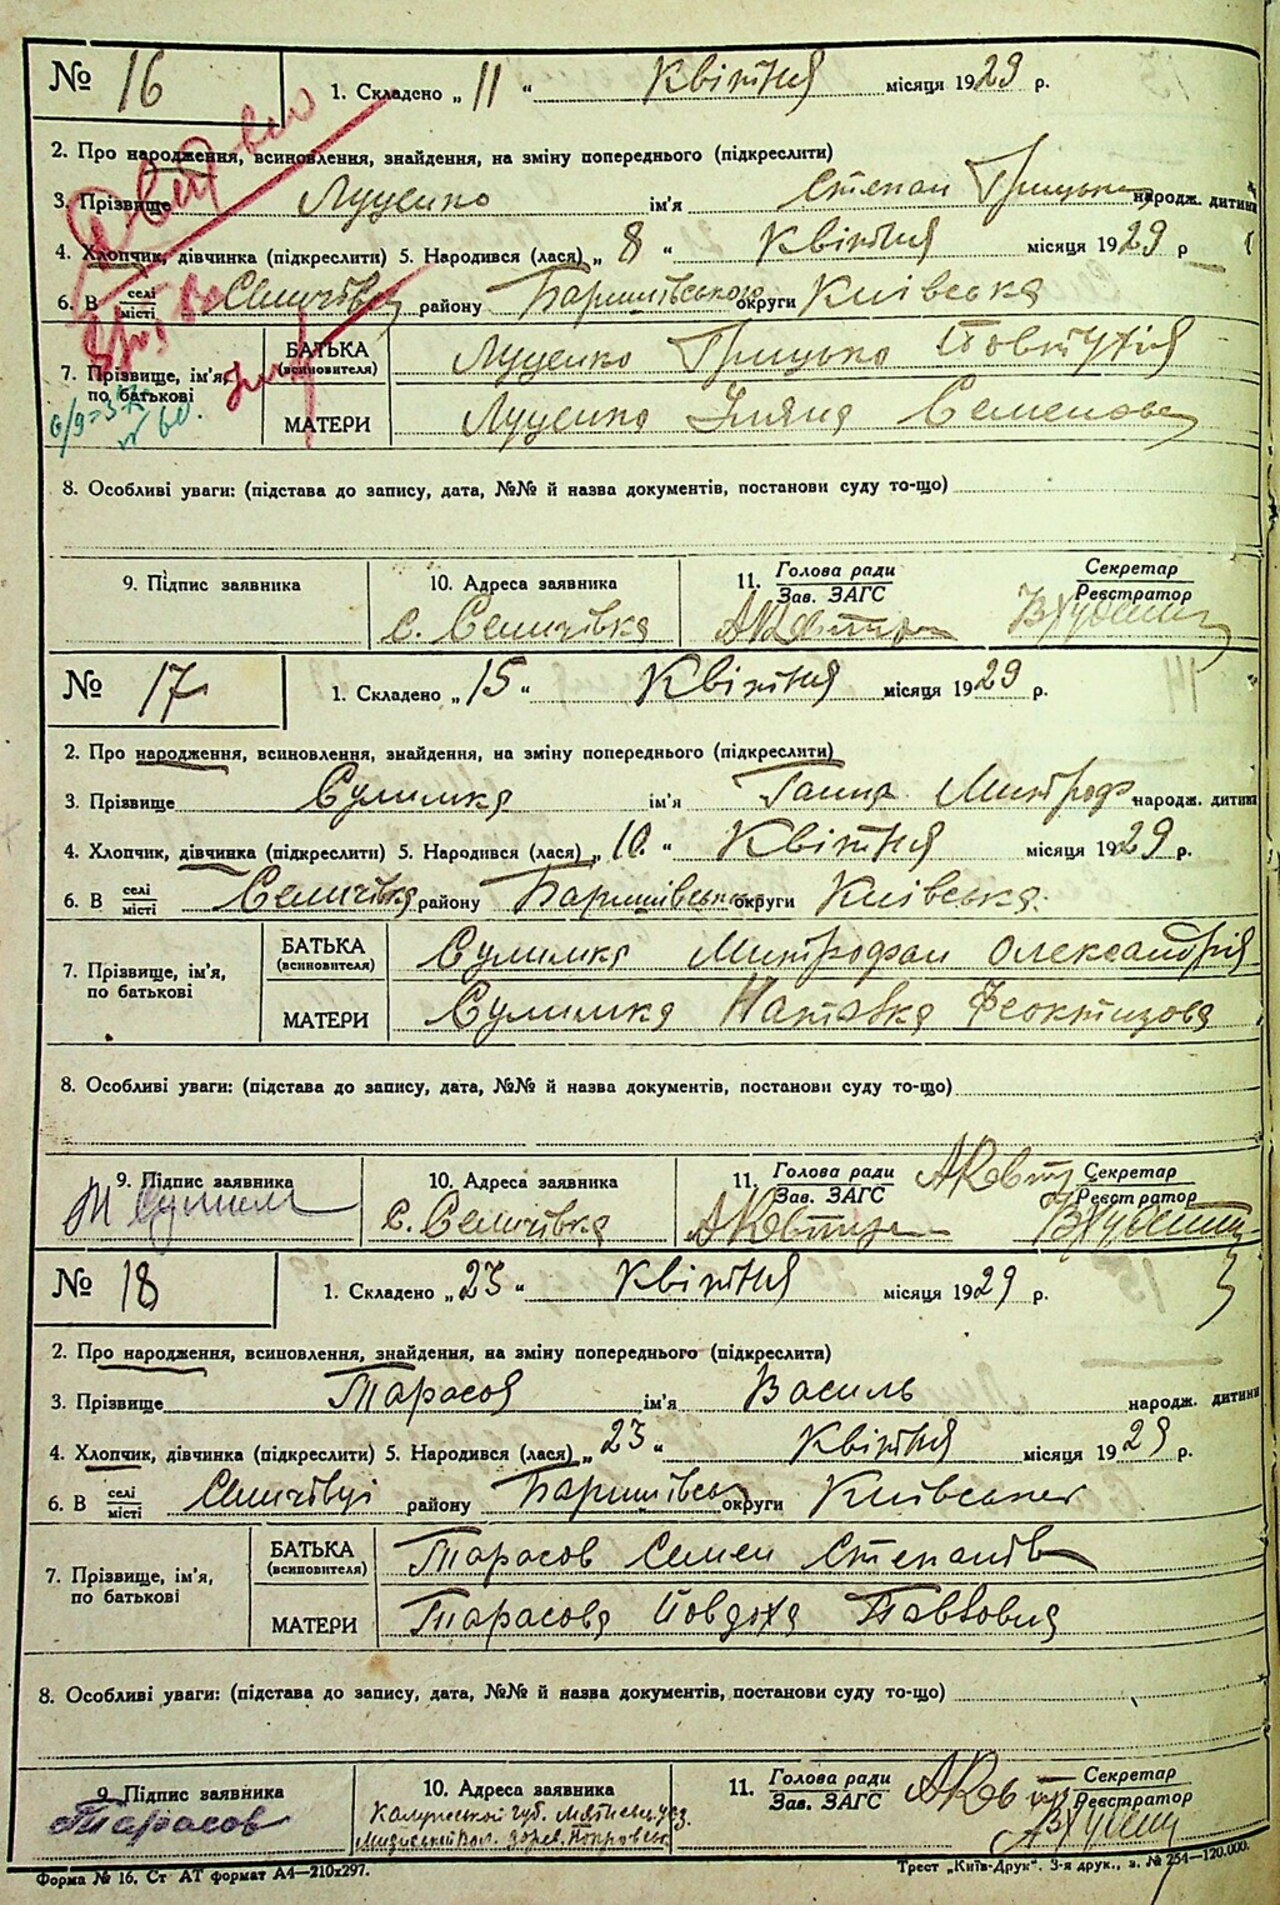 № 16 1. Складено „ 11 “ Квітня місяця 1929 р.
2. Про народження, всиновлення, знайдення, на зміну попереднього (підкреслити)
3. Прізвище Луценко ім'я Степан Грицько народж. дитини
4. Хлопчик, дівчинка (підкреслити) 5. Народився (лася) „ 8 “ Квітня місяця 1929 р
6. В селі місті району Баришівського округи Київська
7. Прізвище, ім'я, по батькові
БАТЬКА (всиновителя) Луценко Грицько
МАТЕРИ Луценко Уляна Семенова
8. Особливі уваги: (підстава до запису, дата, №№ й назва документів, постанови суду то-що)
9. Підпис заявника 10. Адреса заявника 11. Голова ради Зав. ЗАГС Секретар Реєстратор
с. Селичівка
№ 17 1. Складено „ 15 “ Квітня місяця 1929 р.
2. Про народження, всиновлення, знайдення, на зміну попереднього (підкреслити)
3. Прізвище Сулимка ім'я Ганна Митроф народж. дитини
4. Хлопчик, дівчинка (підкреслити) 5. Народився (лася) „ 10. “ Квітня місяця 1929 р.
6. В селі місті Селичівка району Баришівська округи Київська.
7. Прізвище, ім'я, по батькові
БАТЬКА (всиновителя) Сулимка Митрофан
МАТЕРИ Сулимка Наталка Феоктизова
8. Особливі уваги: (підстава до запису, дата, №№ й назва документів, постанови суду то-що)
9. Підпис заявника 10. Адреса заявника 11. Голова ради Зав. ЗАГС Секретар Реєстратор
с. Селичівка
№ 18 1. Складено „ 23 “ Квітня місяця 1929 р.
2. Про народження, всиновлення, знайдення, на зміну попереднього (підкреслити)
3. Прізвище Тарасов ім'я Василь народж. дитини
4. Хлопчик, дівчинка (підкреслити) 5. Народився (лася) „ 23 “ Квітня місяця 1929 р.
6. В селі місті Селичівці району Баришівськ округи
7. Прізвище, ім'я, по батькові
БАТЬКА (всиновителя) Тарасов Семен Степанів
МАТЕРИ Тарасова Повдоха Павловна
8. Особливі уваги: (підстава до запису, дата, №№ й назва документів, постанови суду то-що)
9. Підпис заявника 10. Адреса заявника 11. Голова ради Зав. ЗАГС Секретар Реєстратор
Тарасов
Форма № 16. Ст АТ формат А4—210х297. Трест „Київ-Друк“. 3-я друк., з. № 254—120.000.